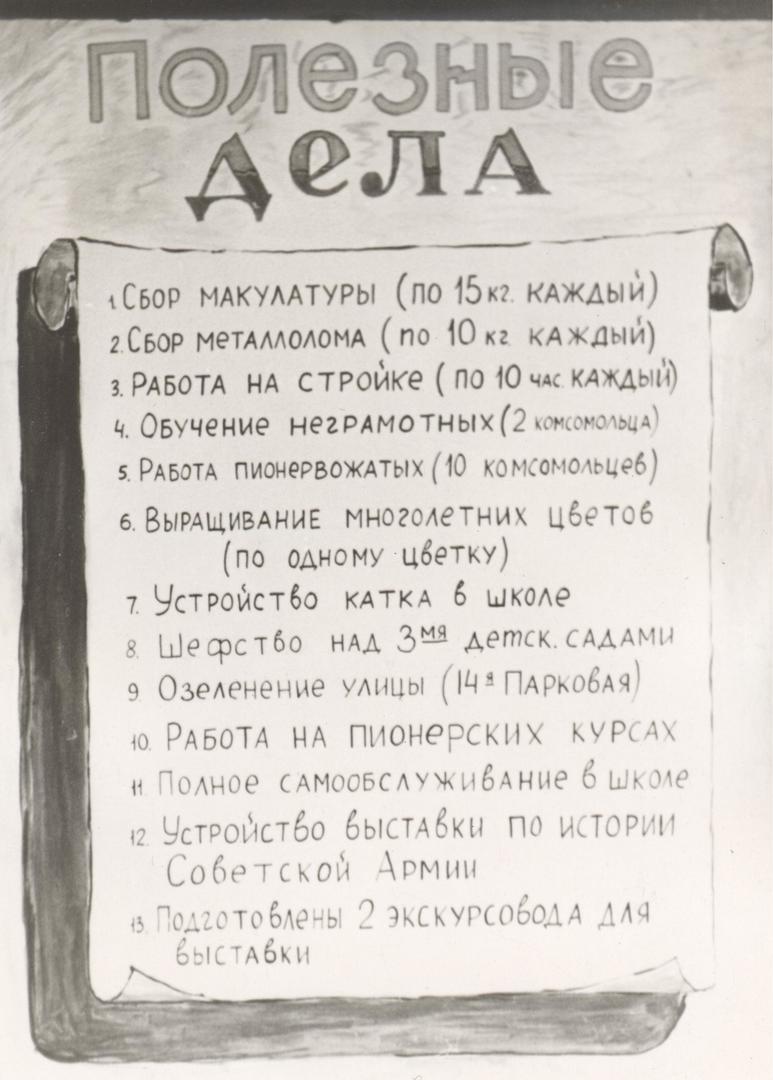 Полезные
дела
1. Сбор макулатуры (по 15 кг. каждый)
2. Сбор металлолома (по 10 кг каждый)
3. Работа на стройке (по 10 час. каждый)
4. Обучение неграмотных (2 комсомольца)
5. Работа пионервожатых (10 комсомольцев)
6. Выращивание многолетних цветов
(по одному цветку)
7. Устройство катка в школе
8. Шефство над 3мя детск. садами
9. Озеленение улицы (14я Парковая)
10. Работа на пионерских курсах
11. Полное самообслуживание в школе
12. Устройство выставки по истории
Советской Армии
13. Подготовлены 2 экскурсовода для
выставки